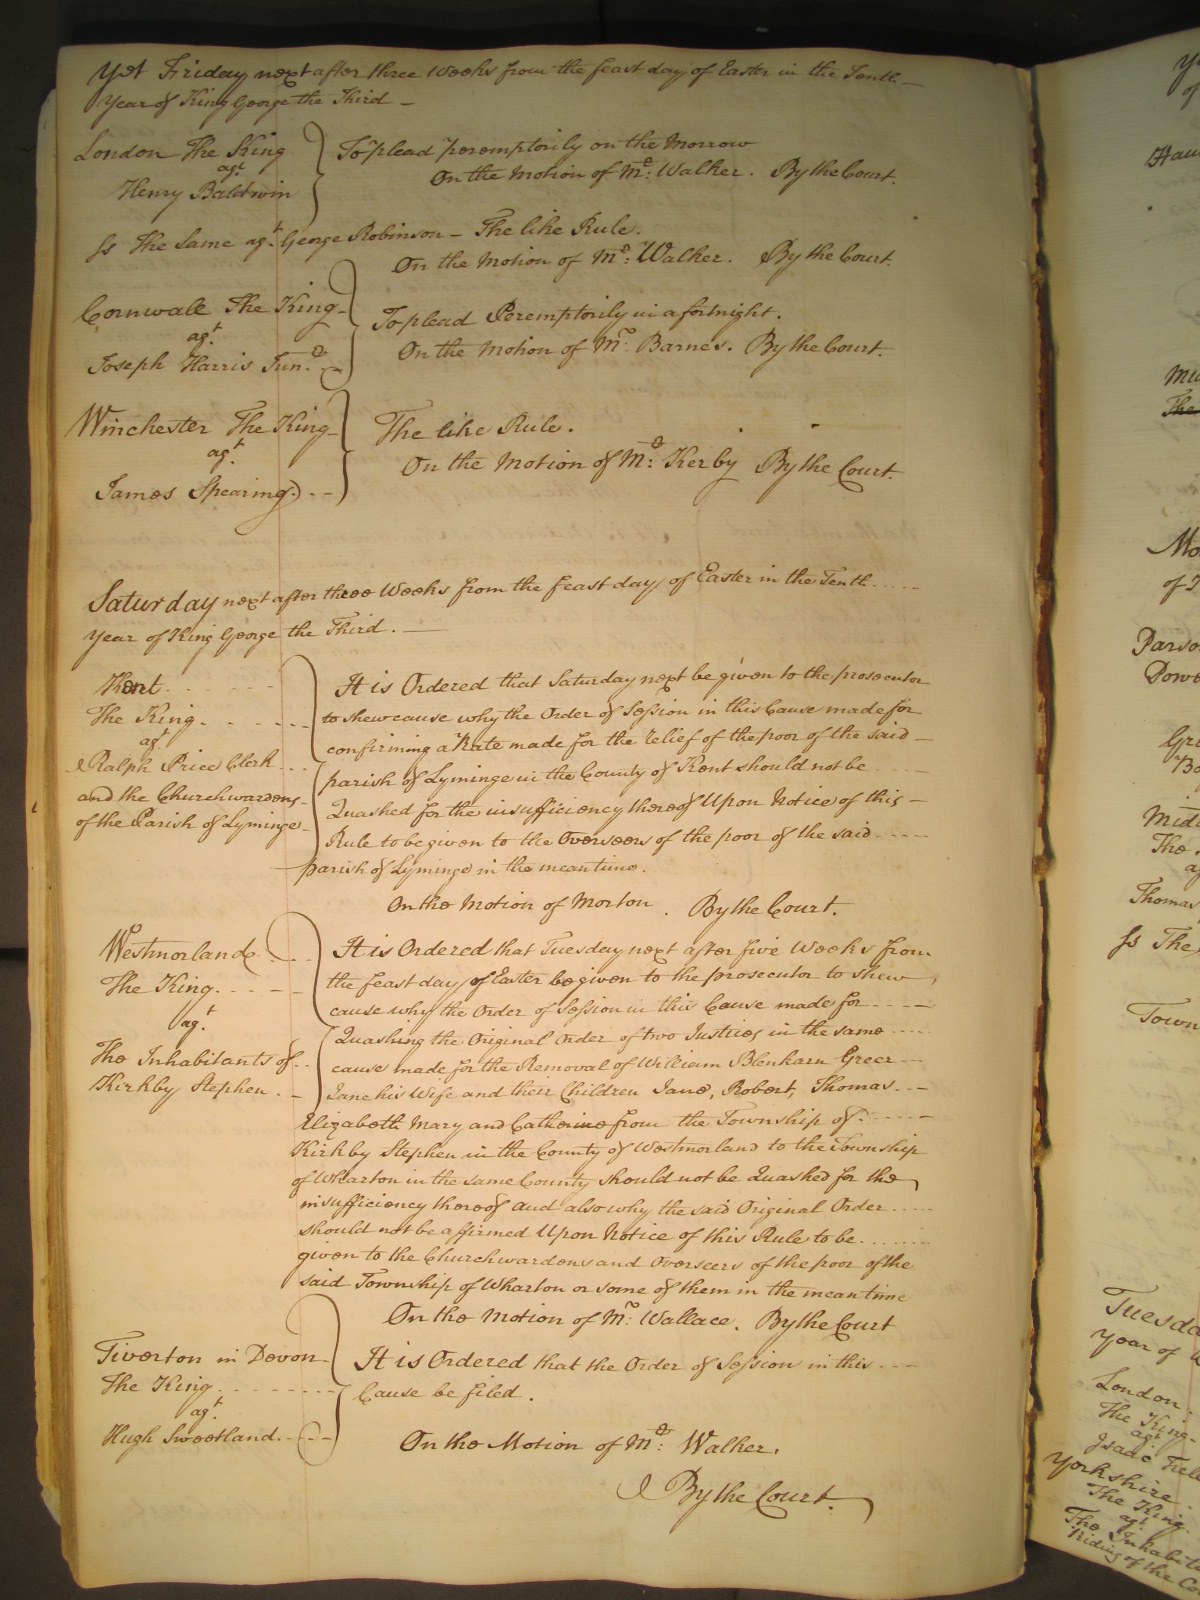 Yet Friday next after three Weeks from the feast day of Easter in the Tenth
Year of King George the Third
London The King
agt
Henry Baldwin
To plead peremptorily on the Morrow
On the Motion of Mr: Walker. By the Court.
Ss The Same agt. George Robinson - The like Rule.
On the Motion of Mr: Walker. By the Court.
Cornwall The King
agt.
Joseph Harris Junr.
To plead Peremptorily in a fortnight.
On the Motion of Mr. Barnes. By the Court.
Winchester The King
agt.
James Spearing
The like Rule.
On the Motion of Mr: Kerby By the Court.
Saturday next after three Weeks from the feast day of Easter in the Tenth
Year of King George the Third.
Kent
The King
agt
Ralph Price Clerk
and the Churchwardens
of the Parish of Lyminge
It is Ordered that Saturday next be given to the prosecutor
to shew cause why the Order of Session in this Cause made for
confirming a Rate made for the relief of the poor of the said
parish of Lyminge in the County of Kent should not be
Quashed for the insufficiency thereof Upon Notice of this
Rule to be given to the Overseers of the poor of the said
parish of Lyminge in the mean time.
On the Motion of Morton. By the Court.
Westmorland
The King
agt.
The Inhabitants of
Kirkby Stephen
It is Ordered that Tuesday next after five Weeks from
the feast day of Easter be given to the prosecutor to shew
cause why the Order of Session in this Cause made for
Quashing the Original Order of two Justices in the same
cause made for the Removal of William Blenkarn Greer
Jane his Wife and their Children Jane, Robert, Thomas
Elizabeth Mary and Catherine from the Township of
Kirkby Stephen in the County of Westmorland to the Township
of Wharton in the same County should not be Quashed for the
insufficiency thereof and also why the said Original Order
should not be affirmed Upon Notice of this Rule to be
given to the Churchwardens and Overseers of the poor of the
said Township of Wharton or some of them in the mean time
On the Motion of Mr. Wallace. By the Court
Tiverton in Devon
The King
agt.
Hugh Sweetland
It is Ordered that the Order of Session in this
Cause be filed.
On the Motion of Mr: Walker.
By the Court.
of
The
of
Ss The
Town
Tuesda
Year of
London
The King
agt
Isaac
Yorkshire
The King
agt.
The Inhabit
Riding of the Co